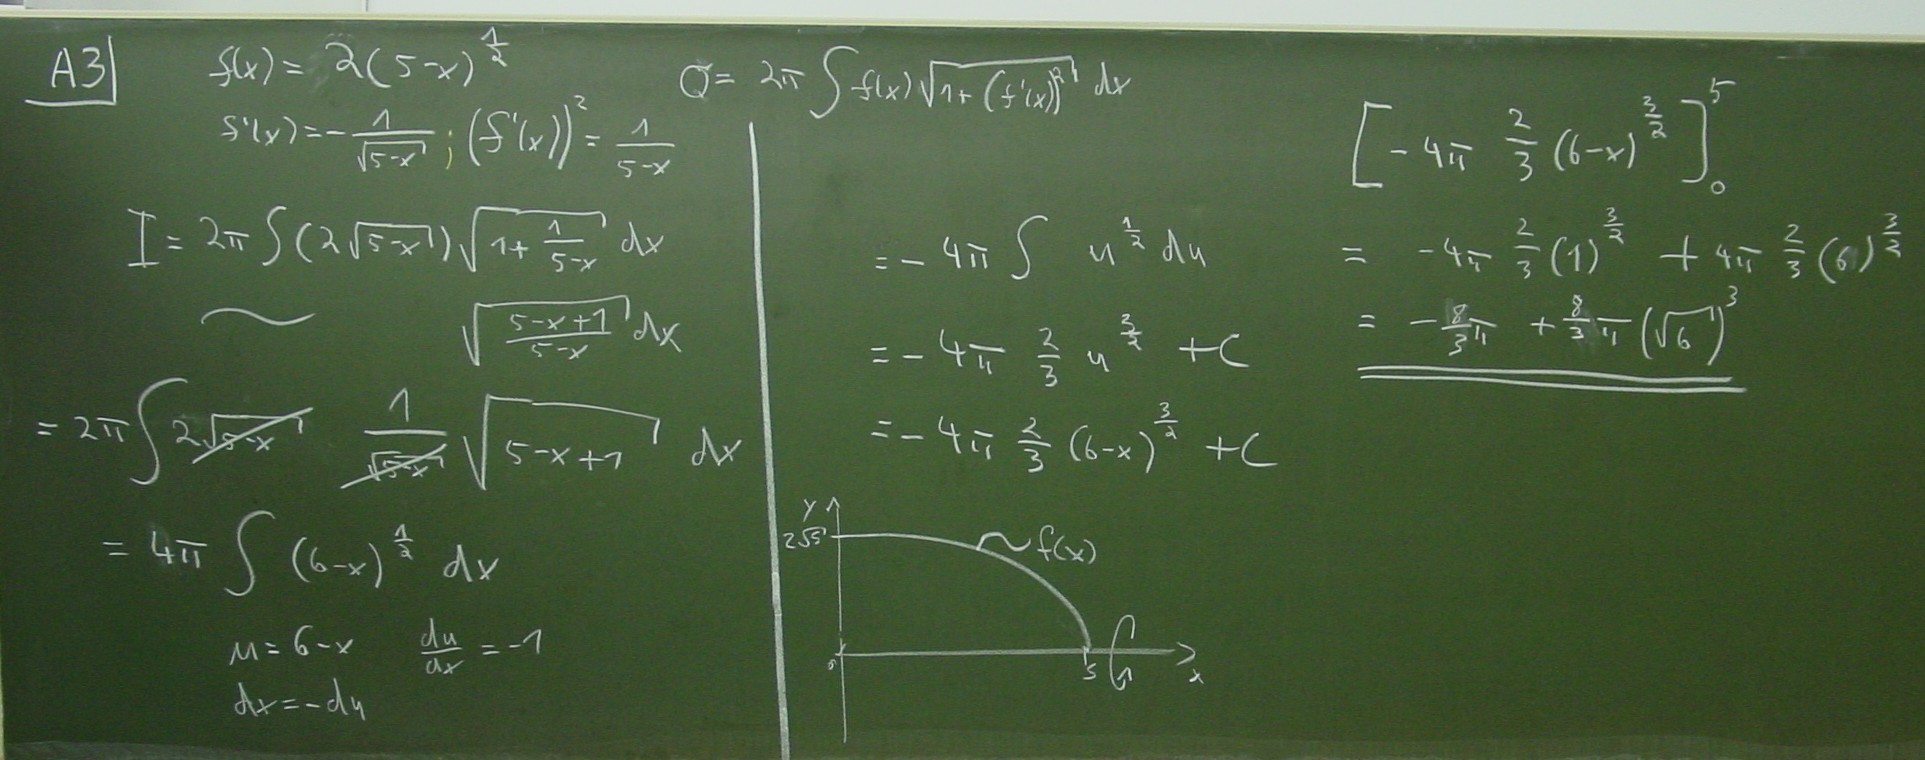 A3
f(x) = 2(5-x)^{\frac{1}{2}}
Q = 2π ∫ f(x) √(1+(f'(x))^2) dx
f'(x) = -\frac{1}{√(5-x)} ; (f'(x))^2 = \frac{1}{5-x}
I = 2π ∫ (2√(5-x)) √(1+\frac{1}{5-x}) dx
~ √(\frac{5-x+1}{5-x}) dx
= 2π ∫ 2√(5-x) \frac{1}{√(5-x)} √(5-x+1) dx
= 4π ∫ (6-x)^{\frac{1}{2}} dx
u = 6-x \frac{du}{dx} = -1
dx = -du
= - 4π ∫ u^{\frac{1}{2}} du
= - 4π \frac{2}{3} u^{\frac{3}{2}} + C
= - 4π \frac{2}{3} (6-x)^{\frac{3}{2}} + C
y
2√5
f(x)
0
5
x
[ - 4π \frac{2}{3} (6-x)^{\frac{3}{2}} ]_0^5
= - 4π \frac{2}{3} (1)^{\frac{3}{2}} + 4π \frac{2}{3} (6)^{\frac{3}{2}}
= - \frac{8}{3}π + \frac{8}{3}π (√6)^3